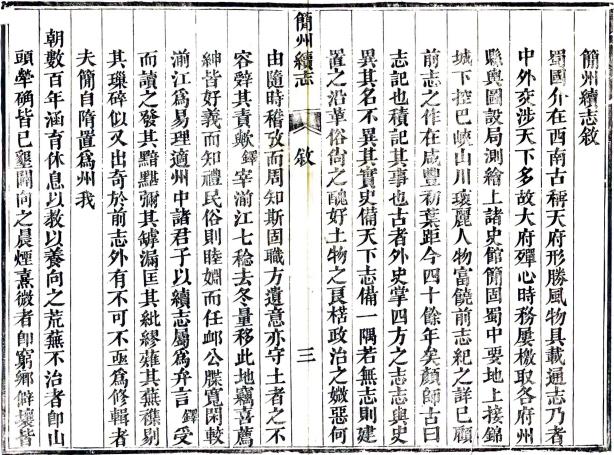 簡州續志敘
蜀國介在西南古稱天府形勝風物具載通志乃者
中外交涉天下多故大府殫心時務屢檄取各府州
縣輿圖設局測繪上諸史館簡固蜀中要地上接錦
城下控巴峽山川瓌麗人物富饒前志紀之詳已顧
前志之作在咸豐初葉距今四十餘年矣顏師古曰
志記也積記其事也古者外史掌四方之志志與史
異其名不異其實史備天下志備一隅若無志則建
置之沿革俗尙之醜好土物之良楛政治之媺惡何
簡州續志
敘
三
由隨時稽攷而周知斯固職方遺意亦守土者之不
容辭其責歟鐸宰湔江七稔去冬量移此地竊喜薦
紳皆好義而知禮民俗則睦婣而任卹公牒寬閑較
湔江爲易理適州中諸君子以續志屬爲弁言鐸受
而讀之發其黯點彌其罅漏匡其紕繆薙其蕪穢剔
其璅碎似又出奇於前志外有不可不亟爲修輯者
夫簡自隋置爲州我
朝數百年涵育休息以教以養向之荒蕪不治者卽山
頭犖确皆已墾闢向之晨煙熹微者卽窮鄉僻壤皆